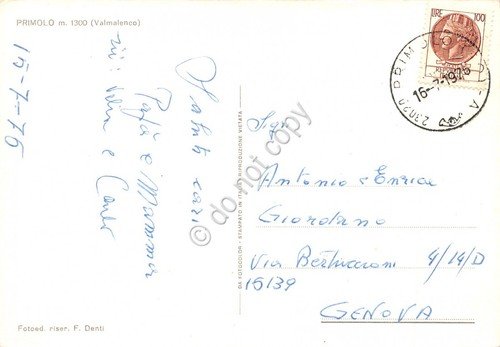 PRIMOLO m. 1300 (Valmalenco)
15-7-76
Saluti cari
Papà e Mamma
zii: Velia e Carlo
Fotoed. riser. F. Denti
DA FOTOCOLOR - STAMPATO IN ITALIA RIPRODUZIONE VIETATA
© do not copy
LIRE 100
PRIMOLO
16-7-1976
23020
Sigg.
Antonio e Enrica
Giordano
Via Bertuccioni 4/19/D
16139
GENOVA